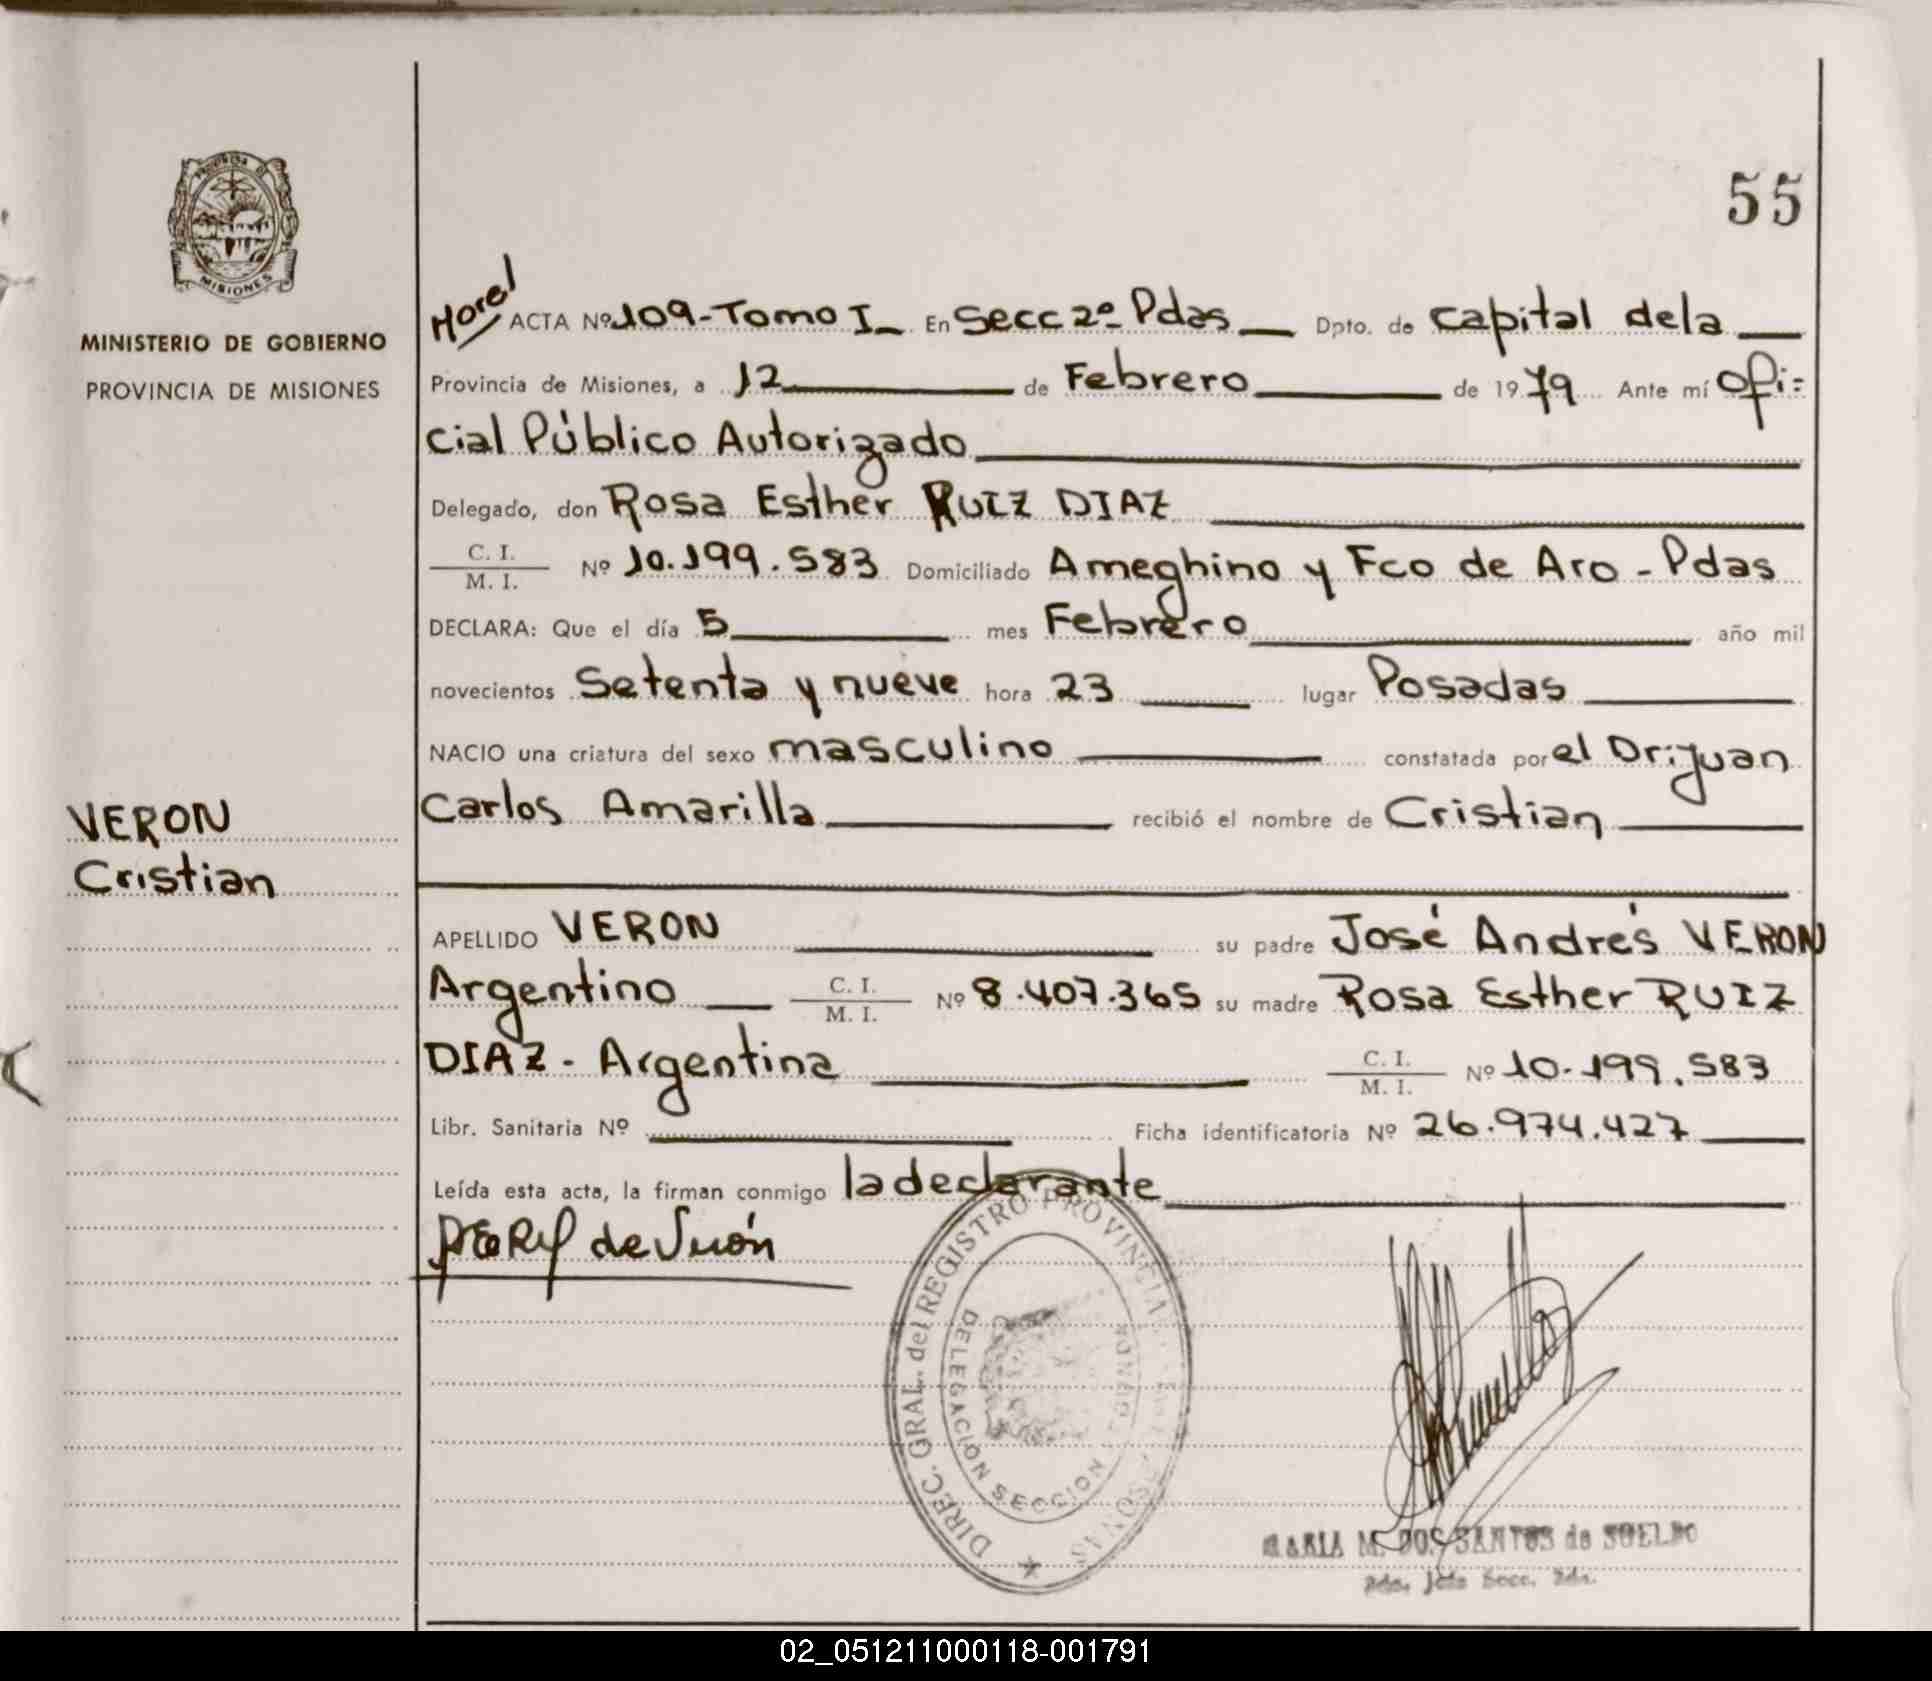 55
MINISTERIO DE GOBIERNO
PROVINCIA DE MISIONES
VERON
Cristian
ACTA Nº 109-Tomo I En Secc 2º Pdas Dpto. de Capital de la
Provincia de Misiones, a 12 de Febrero de 1979 Ante mí Ofi=
cial Público Autorizado
Delegado, don Rosa Esther RUIZ DIAZ
C. I.
M. I. Nº 10.199.583 Domiciliado Ameghino y Fco de Aro - Pdas
DECLARA: Que el día 5 mes Febrero año mil
novecientos Setenta y nueve hora 23 lugar Posadas
NACIO una criatura del sexo masculino constatada por el Dr. Juan
Carlos Amarilla recibió el nombre de Cristian
APELLIDO VERON su padre José Andrés VERON
Argentino C. I.
M. I. Nº 8.407.365 su madre Rosa Esther RUIZ
DIAZ - Argentina C. I.
M. I. Nº 10.199.583
Libr. Sanitaria Nº Ficha identificatoria Nº 26.974.427
Leída esta acta, la firman conmigo la declarante
de Verón
DIREC. GRAL. del REGISTRO PROVINCIAL
DELEGACIÓN SECCION
MARIA M. DOS SANTOS de SUELDO
02_051211000118-001791